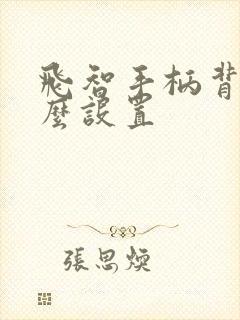 飛智手柄背
麼設置
張思煥